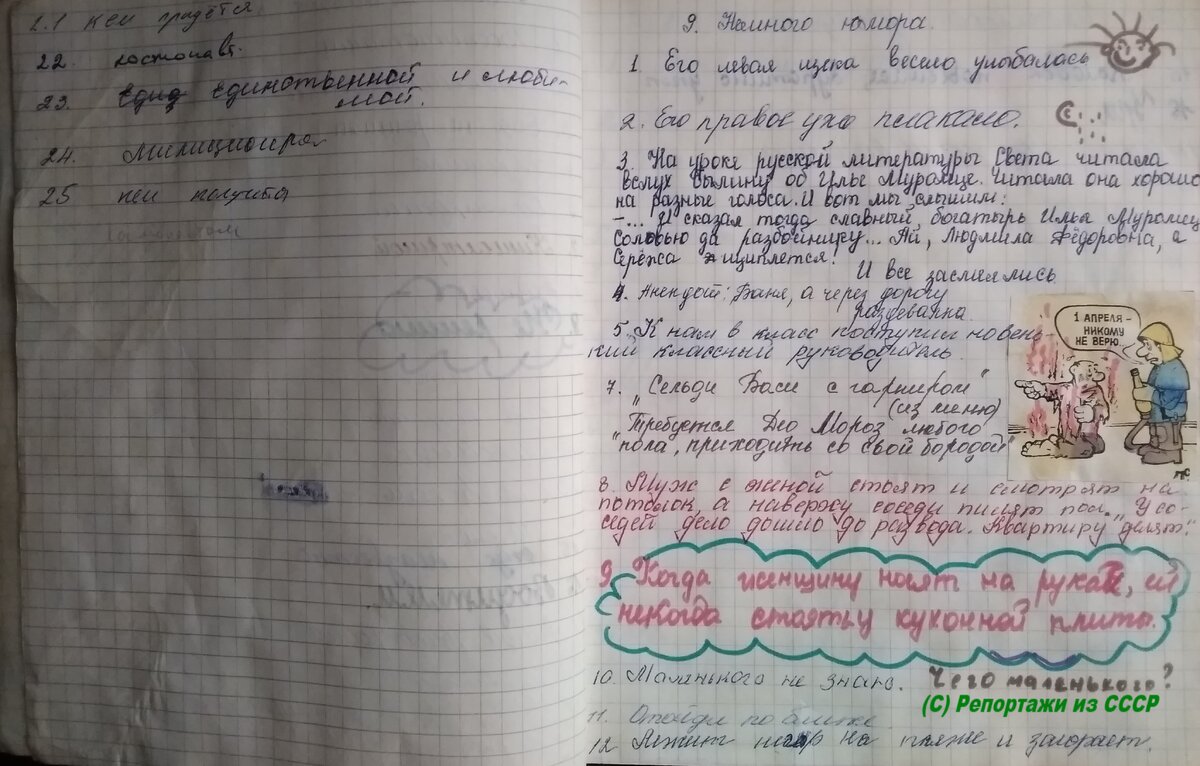 2.1 кем придётся
22. космонавт.
23. един единственной и люби-
мой.
24. Милиционера
25 кем получится
9. Немного юмора.
1. Его левая щека весело улыбалась
2. Его правое ухо плакало.
3. На уроке русской литературы Света читала
вслух былину об Илье Муромце. Читала она хорошо
на разные голоса. И вот мы слышим:
-... И сказал тогда славный богатырь Илья Муромец
Соловью да разбойнику... Ай, Людмила Фёдоровна, а
Серёжа щиплется!
И все засмеялись
4. Анекдот: Баня, а через дорогу
раздевалка.
5. К нам в класс поступил новень-
кий классный руководитель.
1 АПРЕЛЯ -
НИКОМУ
НЕ ВЕРЮ.
7. "Сельди Васи с гарниром"
(из меню)
"Требуется Дед Мороз любого
пола, приходить со свой бородой"
8. Муж с женой стоят и смотрят на
потолок, а наверху соседи пилят пол. "У со-
седей дело дошло до развода. Квартиру делят!
9. Когда женщину носят на руках, ей
некогда стоять у кухонной плиты.
10. Маленького не знаю. Чего маленького?
(С) Репортажи из СССР
11. Отойди поближе
12. Лежит негр на пляже и загорает.